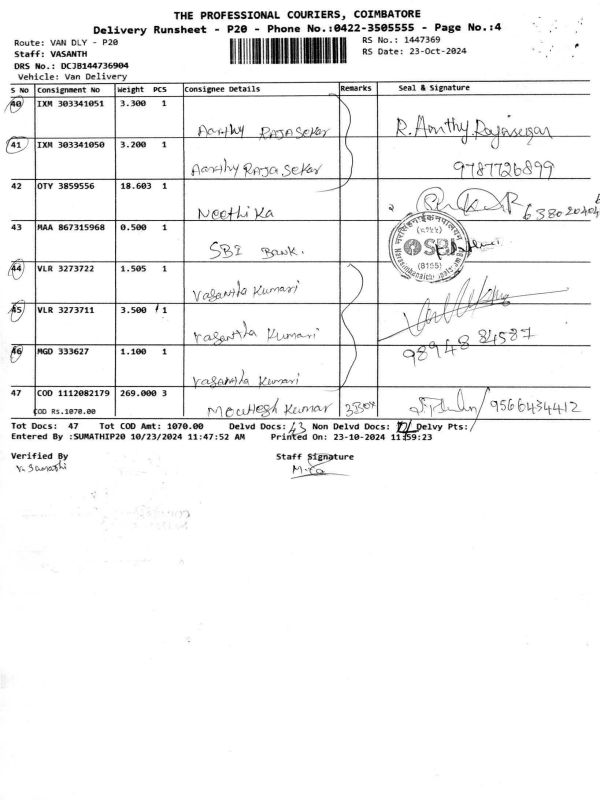 THE PROFESSIONAL COURIERS, COIMBATORE
Delivery Runsheet - P20 - Phone No.:0422-3505555 - Page No.:4
Route: VAN DLY - P20
RS No.: 1447369
Staff: VASANTH
RS Date: 23-Oct-2024
DRS No.: DCJB144736904
Vehicle: Van Delivery
S No Consignment No Weight PCS Consignee Details Remarks Seal & Signature
40 IXM 303341051 3.300 1 Aarthy RAJASekar
R. Aarthy Rajasegar
41 IXM 303341050 3.200 1 Aarthy RAJA Sekar
9787726899
42 OTY 3859556 18.603 1 Neethika
43 MAA 867315968 0.500 1 SBI Bank.
SBI
(8155)
44 VLR 3273722 1.505 1 Vasantha Kumari
45 VLR 3273711 3.500 1 Vasantha Kumari
98948 84587
46 MGD 333627 1.100 1 Vasantha Kumari
47 COD 1112082179 269.000 3 Moulhesh Kumar 3Box 9566434412
COD Rs.1070.00
Tot Docs: 47 Tot COD Amt: 1070.00 Delvd Docs: 43 Non Delvd Docs: Delvy Pts:
Entered By :SUMATHIP20 10/23/2024 11:47:52 AM Printed On: 23-10-2024 11:59:23
Verified By
Staff Signature
V. Sumathi